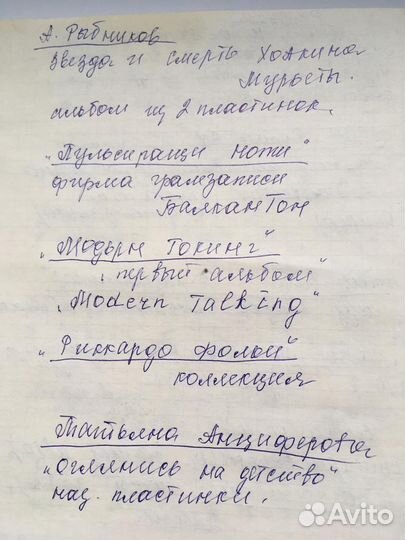 А. Рыбников
Звезда и смерть Хоакина
Мурьеты.
альбом из 2 пластинок.
„Пульсиращи ноти"
фирма грамзаписи
Балкантон
„Модърн Токинг"
„первый альбом"
„Modern Talking"
„Риккардо Фольи"
коллекция
Татьяна Анциферова
„Оглянись на детство"
наз. пластинки.
Avito